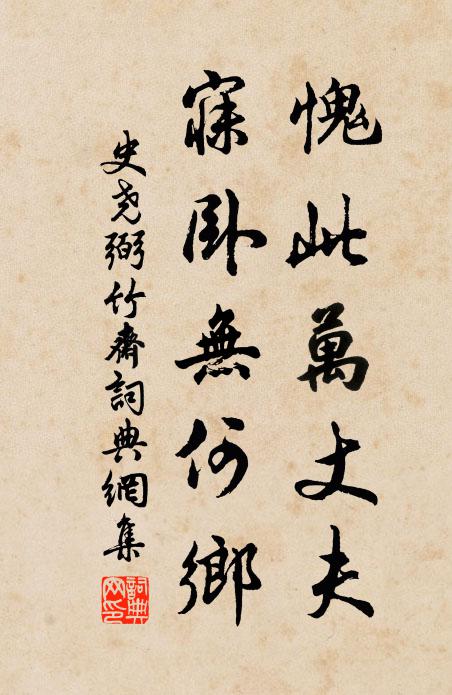 愧此萬丈夫
寐卧無何鄉
史尧弼竹齋詞典網集
詞典網印